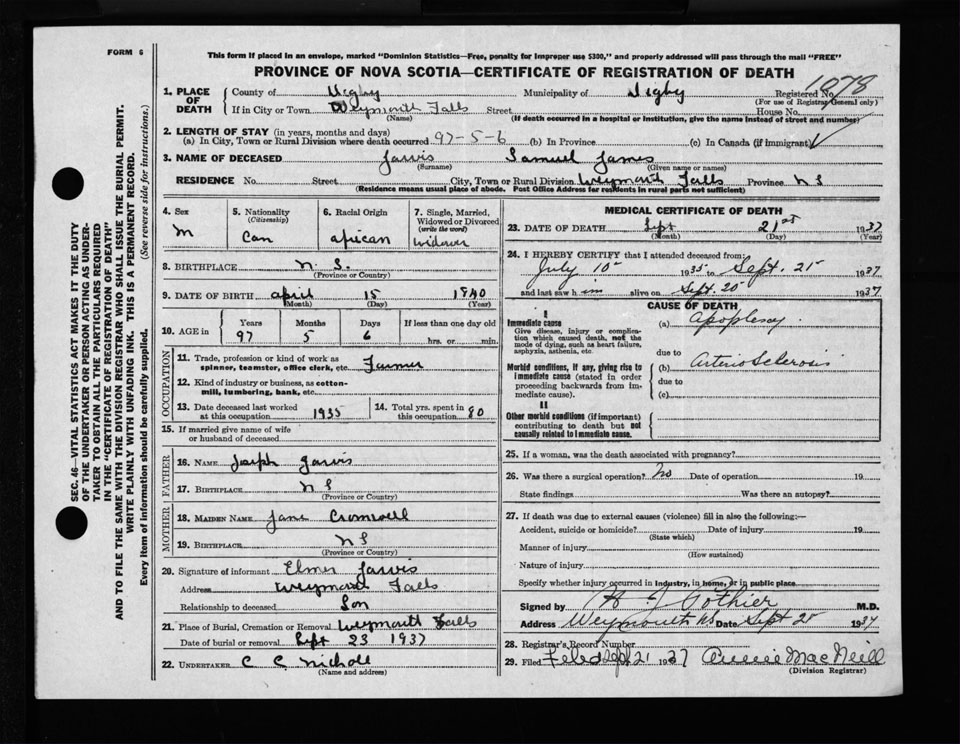 FORM 6
This form if placed in an envelope, marked "Dominion Statistics—Free, penalty for improper use $300," and properly addressed will pass through the mail "FREE"
PROVINCE OF NOVA SCOTIA—CERTIFICATE OF REGISTRATION OF DEATH
1078
1. PLACE OF DEATH County of Digby Municipality of Digby Registered No.
(For use of Registrar General only)
If in City or Town Weymouth Falls Street House No.
(Name) (If death occurred in a hospital or institution, give the name instead of street and number)
2. LENGTH OF STAY (in years, months and days)
(a) In City, Town or Rural Division where death occurred 97-5-6 (b) In Province (c) In Canada (if immigrant)
3. NAME OF DECEASED Jarvis Samuel James
(Surname) (Given name or names)
RESIDENCE No. Street City, Town or Rural Division Weymouth Falls Province N S
(Residence means usual place of abode. Post Office Address for residents in rural parts not sufficient)
4. Sex M
5. Nationality (Citizenship) Can
6. Racial Origin african
7. Single, Married, Widowed or Divorced (write the word) Widower
8. BIRTHPLACE N. S.
(Province or County)
9. DATE OF BIRTH april 15 1840
(Month) (Day) (Year)
10. AGE in Years 97 Months 5 Days 6 If less than one day old hrs. or min.
OCCUPATION
11. Trade, profession or kind of work as spinner, teamster, office clerk, etc. Farmer
12. Kind of industry or business, as cotton-mill, lumbering, bank, etc.
13. Date deceased last worked at this occupation 1935
14. Total yrs. spent in this occupation 80
15. If married give name of wife or husband of deceased
FATHER
16. NAME Joseph Jarvis
17. BIRTHPLACE N S
(Province or County)
MOTHER
18. MAIDEN NAME Jane Cromwell
19. BIRTHPLACE N S
(Province or County)
20. Signature of informant Elmer Jarvis
Address Weymouth Falls
Relationship to deceased Son
21. Place of Burial, Cremation or Removal Weymouth Falls
Date of burial or removal Sept 23 1937
22. UNDERTAKER C C Nicholl
(Name and address)
MEDICAL CERTIFICATE OF DEATH
23. DATE OF DEATH Sept 21st 1937
(Month) (Day) (Year)
24. I HEREBY CERTIFY that I attended deceased from:
July 10 1935 to Sept. 21 1937
and last saw him alive on Sept. 20 1937
CAUSE OF DEATH
I
Immediate cause
Give disease, injury or complication which caused death, not the mode of dying, such as heart failure, asphyxia, asthenia, etc.
(a) Apoplexy.
due to
Morbid conditions, if any, giving rise to immediate cause (stated in order proceeding backwards from immediate cause).
(b) Arterio Sclerosis
due to
(c)
II
Other morbid conditions (if important) contributing to death but not causally related to immediate cause.
25. If a woman, was the death associated with pregnancy?
26. Was there a surgical operation? No Date of operation 19
State findings Was there an autopsy?
27. If death was due to external causes (violence) fill in also the following:—
Accident, suicide or homicide? Date of injury 19
(State which)
Manner of injury
(How sustained)
Nature of injury
Specify whether injury occurred in industry, in home, or in public place
Signed by H J Pothier M.D.
Address Weymouth NS Date Sept 20 1937
28. Registrar's Record Number
29. Filed Sept 21 1937 Annie MacNeill
(Division Registrar)
SEC. 46—VITAL STATISTICS ACT MAKES IT THE DUTY
OF THE UNDERTAKER OR PERSON ACTING AS UNDER-
TAKER TO OBTAIN ALL THE PARTICULARS REQUIRED
IN THE "CERTIFICATE OF REGISTRATION OF DEATH"
AND TO FILE THE SAME WITH THE DIVISION REGISTRAR WHO SHALL ISSUE THE BURIAL PERMIT.
WRITE PLAINLY WITH UNFADING INK. THIS IS A PERMANENT RECORD.
Every item of information should be carefully supplied. (See reverse side for instructions.)